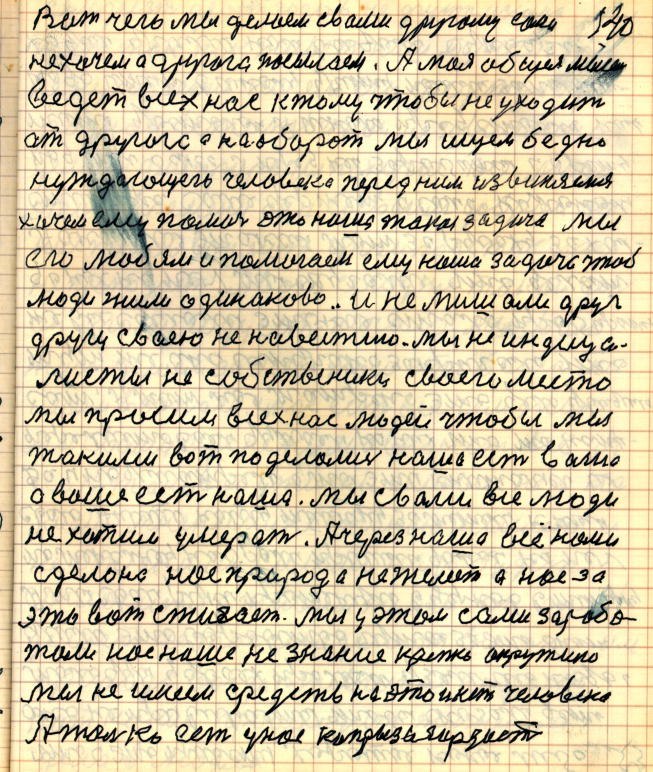 Вот чего мы делаем с вами другому сами 140
не хочем а друга посылаем. А моя общая мысль
ведет всех нас к тому чтобы не уходит
от другога а наоборот мы ищем бедно
нуждающего человека перед ним извиняемся
хочем ему помоч это наша такая задача мы
его любим и помогаем ему наша задача чтоб
люди жили одинаково.. и не мишали друг
другу своею не навестию. мы не индиуа-
листы не собствиники своего место
мы просим всех нас людей чтобы мы
такими вот по делам наша ест ваша
а ваше ест наша. мы с вами все люди
не хотим умерат. А через наша всё нами
сделана нас природа не жилеит а нас за
это вот стигает. мы у этом сами зарабо-
тали нас наше не знание крепко окружило
мы не имеем средств на это нет человека
А только ест у нас